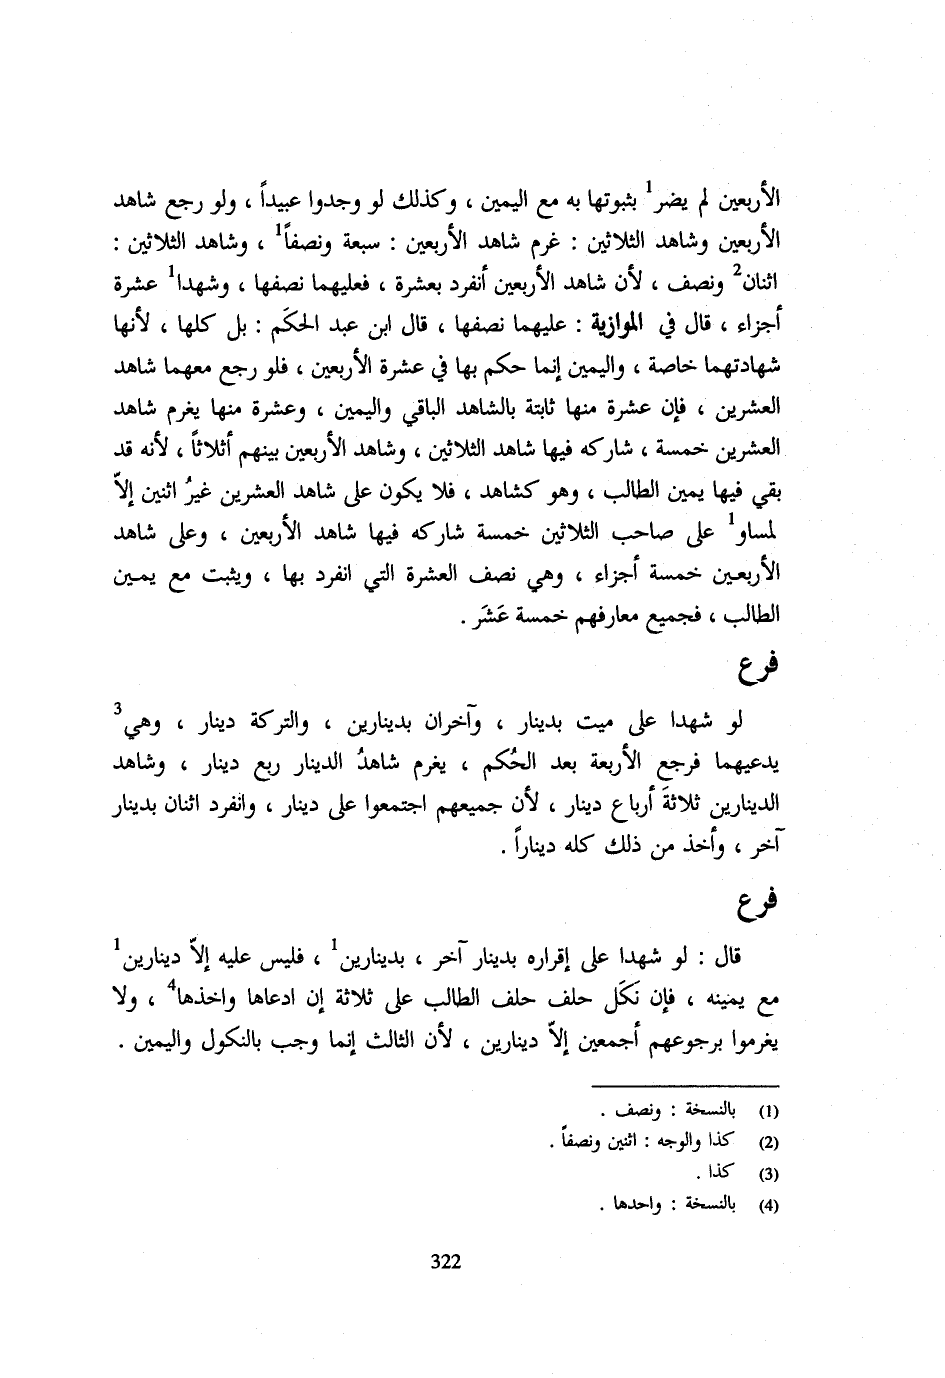 الأربعين لم يضر1 بثبوتها به مع اليمين ، وكذلك لو وجدوا عبيداً ، ولو رجع شاهد
الأربعين وشاهد الثلاثين : غرم شاهد الأربعين : سبعة ونصفاً1 ، وشاهد الثلاثين :
اثنان2 ونصف ، لأن شاهد الأربعين أنفرد بعشرة ، فعليهما نصفها ، وشهدا1 عشرة
أجزاء ، قال في الموازية : عليهما نصفها ، قال ابن عبد الحكَم : بل كلها ، لأنها
شهادتهما خاصة ، واليمين إنما حكم بها في عشرة الأربعين ، فلو رجع معهما شاهد
العشرين ، فإن عشرة منها ثابتة بالشاهد الباقي واليمين ، وعشرة منها يغرم شاهد
العشرين خمسة ، شاركه فيها شاهد الثلاثين ، وشاهد الأربعين بينهم أثلاثاً ، لأنه قد
بقي فيها يمين الطالب ، وهو كشاهد ، فلا يكون على شاهد العشرين غيرُ اثنين إلاّ
لمساو1 على صاحب الثلاثين خمسة شاركه فيها شاهد الأربعين ، وعلى شاهد
الأربعين خمسة أجزاء ، وهي نصف العشرة التي انفرد بها ، ويثبت مع يمين
الطالب ، فجميع معارفهم خمسة عَشَر .
فرع
لو شهدا على ميت بدينار ، وآخران بدينارين ، والتركة دينار ، وهي3
يدعيهما فرجع الأربعة بعد الحُكم ، يغرم شاهدُ الدينار ربع دينار ، وشاهد
الدينارين ثلاثةَ أرباع دينار ، لأن جميعهم اجتمعوا على دينار ، وانفرد اثنان بدينار
آخر ، وأخذ من ذلك كله ديناراً .
فرع
قال : لو شهدا على إقراره بدينار آخر ، بدينارين1 ، فليس عليه إلاّ دينارين1
مع يمينه ، فإن نَكَل حلف حلف الطالب على ثلاثة إن ادعاها واخذها4 ، ولا
يغرموا برجوعهم أجمعين إلاّ دينارين ، لأن الثالث إنما وجب بالنكول واليمين .
(1) بالنسخة : ونصف .
(2) كذا والوجه : اثنين ونصفاً .
(3) كذا .
(4) بالنسخة : واحدها .
322